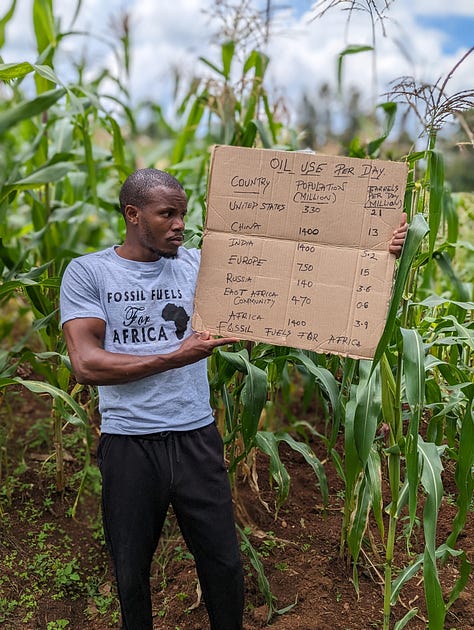 OIL USE PER DAY
COUNTRY POPULATION (MILLION) BARRELS PER DAY (MILLION)
UNITED STATES 330 21
CHINA 1400 13
INDIA 1400 5.2
EUROPE 750 15
RUSSIA 140 3.6
EAST AFRICA COMMUNITY 470 0.6
AFRICA 1400 3.9
FOSSIL FUELS FOR AFRICA
FOSSIL FUELS
For
AFRICA